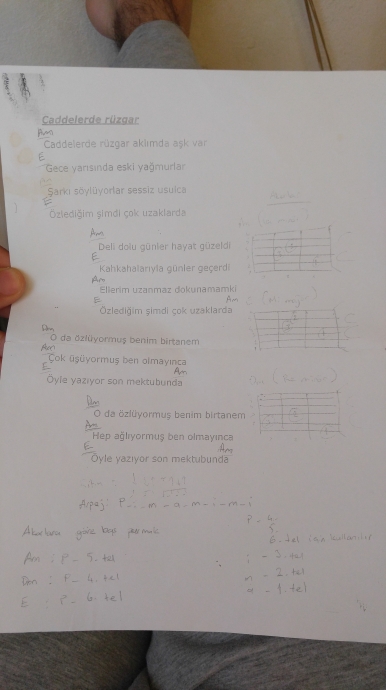 Caddelerde rüzgar
Am
Caddelerde rüzgar aklımda aşk var
E
Gece yarısında eski yağmurlar
Şarkı söylüyorlar sessiz usulca
E
Özlediğim şimdi çok uzaklarda
Am
Deli dolu günler hayat güzeldi
E
Kahkahalarıyla günler geçerdi
Am
Ellerim uzanmaz dokunamamki
E Am
Özlediğim şimdi çok uzaklarda
Dm
O da özlüyormuş benim birtanem
Am
Çok üşüyormuş ben olmayınca
E Am
Öyle yazıyor son mektubunda
Dm
O da özlüyormuş benim birtanem
Am
Hep ağlıyormuş ben olmayınca
E Am
Öyle yazıyor son mektubunda
Arpej: P - i - m - a - m - i - m - i
Akorlara göre baş parmak
Am : P - 5. tel
Dm : P - 4. tel
E : P - 6. tel
P - 4.
5.
6. tel
i - 3. tel
m - 2. tel
a - 1. tel